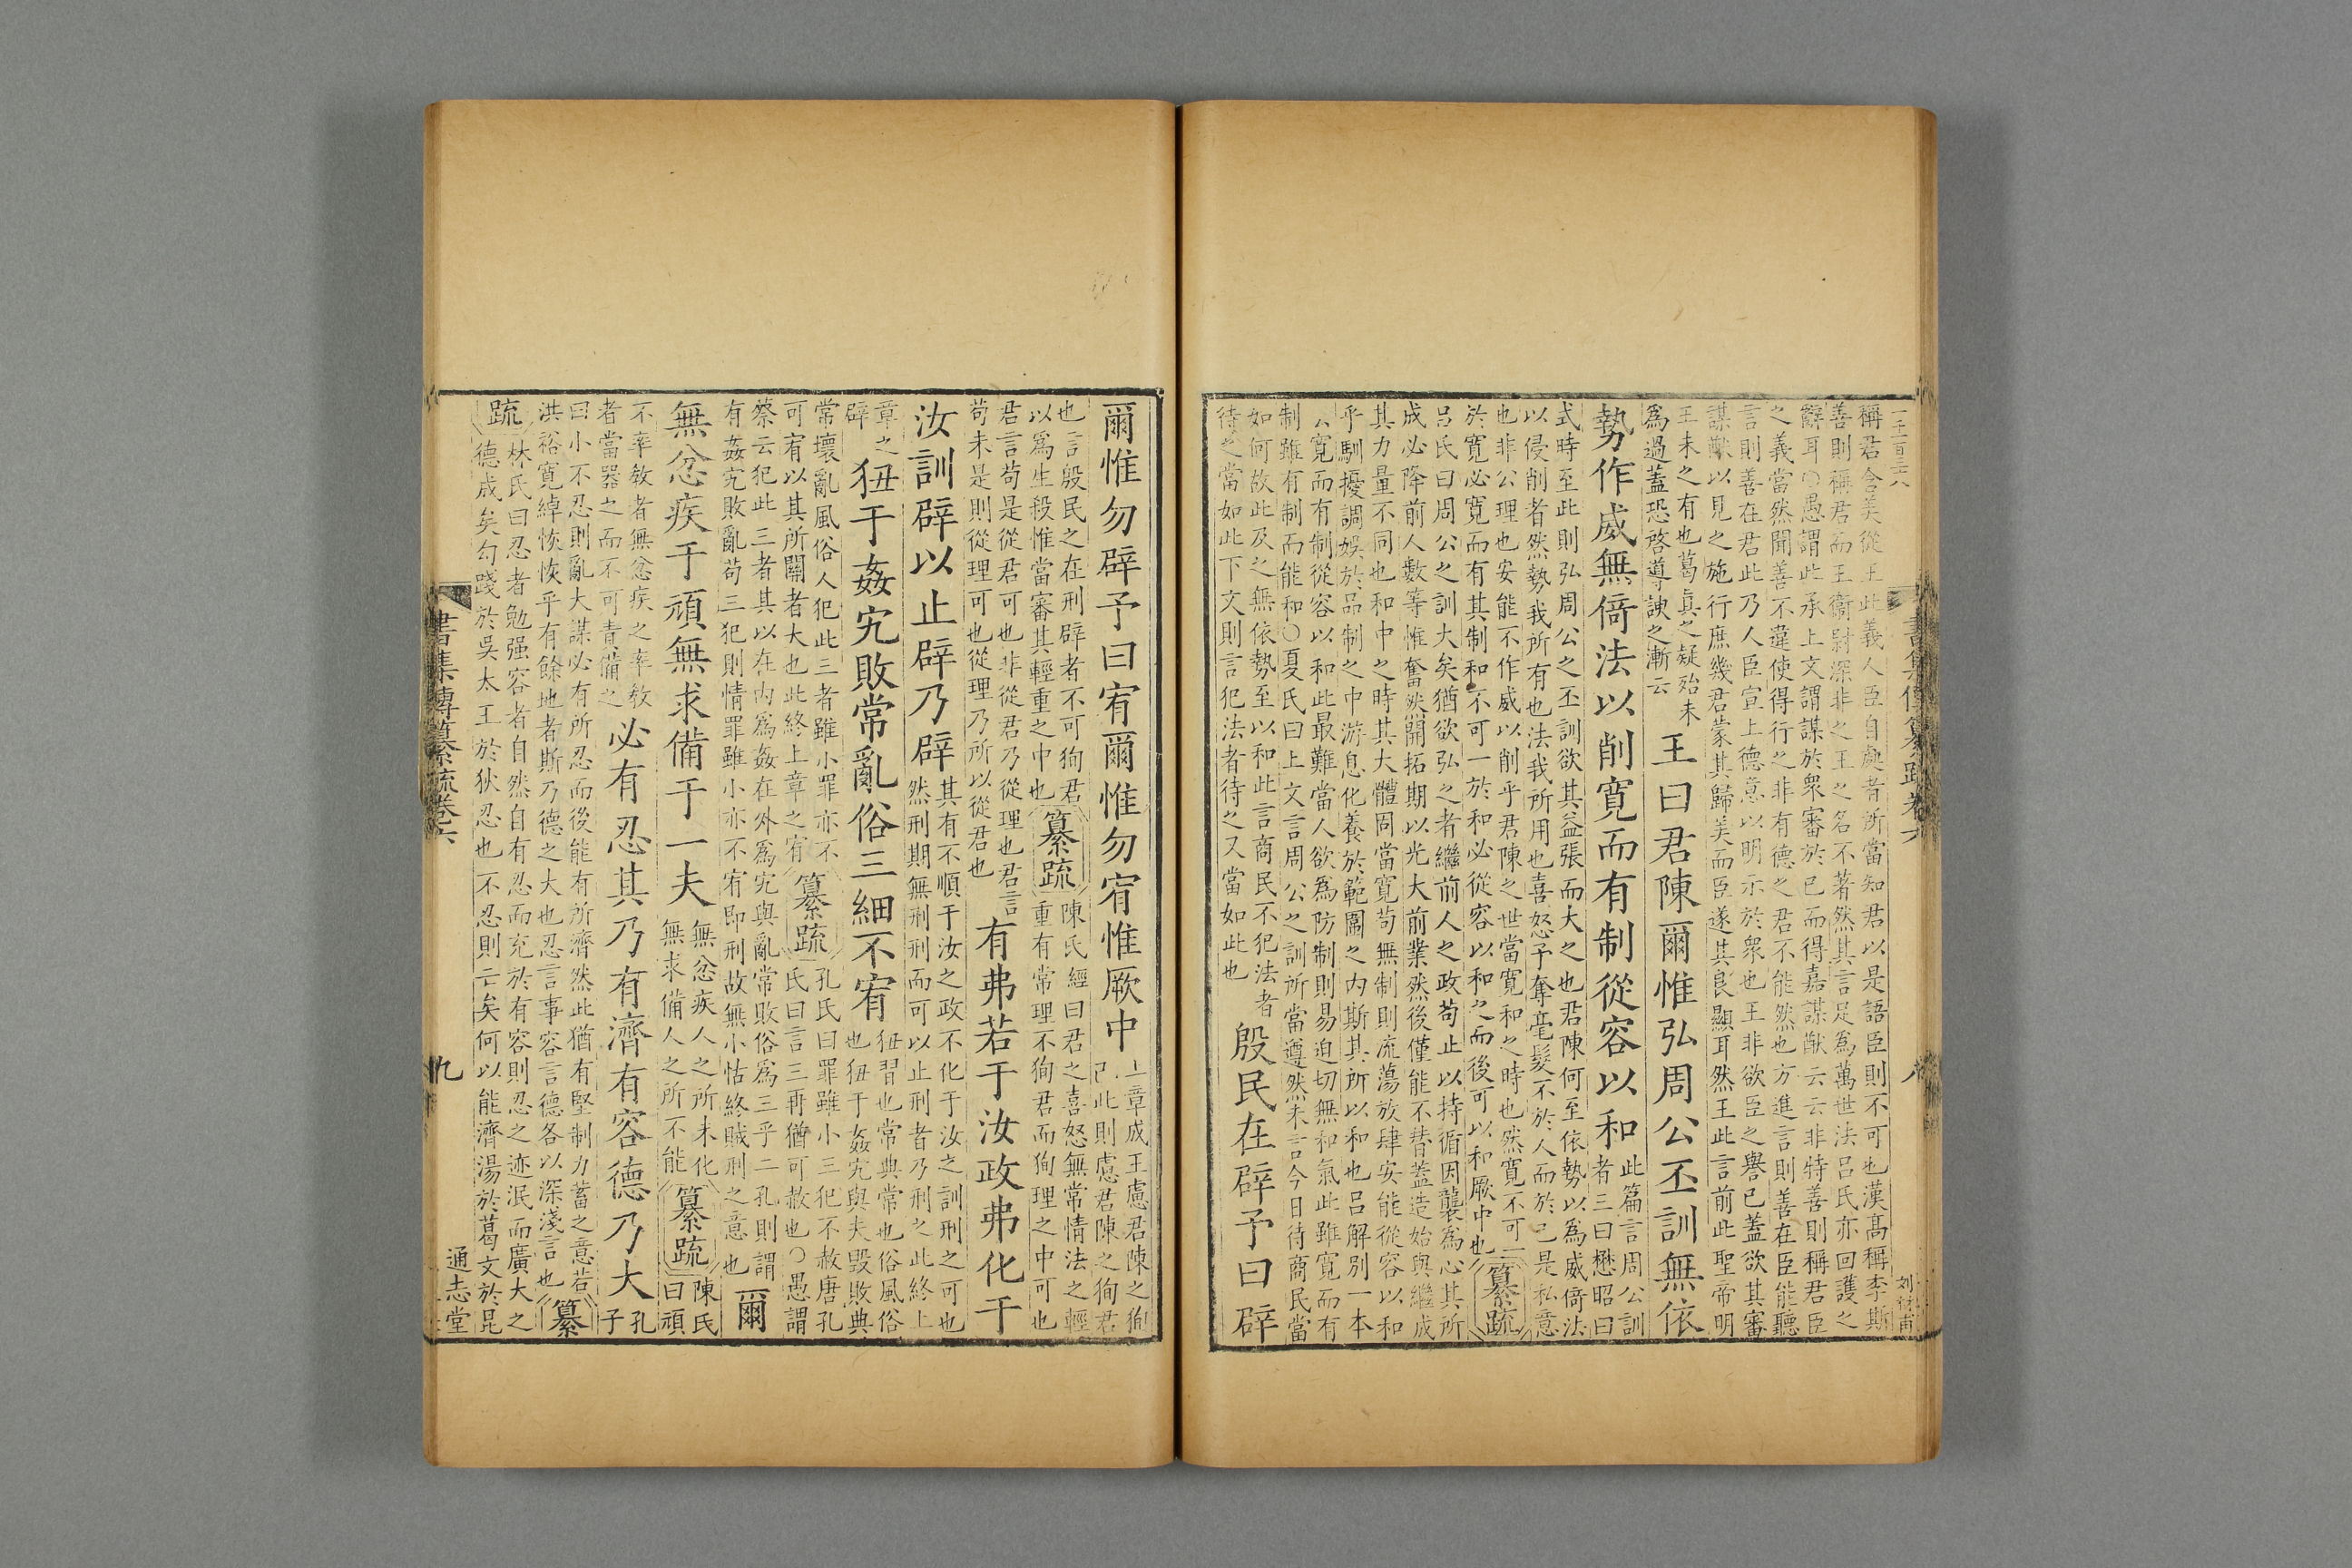 稱君含美從王此義人臣自處者所當知君以是語臣則不可也漢高稱李斯
善則稱君而王衛尉深非之王之名不著然其言足爲萬世法呂氏亦回護之
辭耳○愚謂此承上文謂謀於衆審於已而得嘉謀猷云云非特善則稱君臣
之義當然聞善不違使得行之非有德之君不能然也方進言則善在臣能聽
言則善在君此乃人臣宣上德意以明示於衆也王非欲臣之譽已蓋欲其審
謀猷以見之施行庶幾君蒙其歸美而臣遂其良顯耳然王此言前此聖帝明
王未之有也葛眞之疑殆未
爲過蓋恐啓導諛之漸云
王曰君陳爾惟弘周公丕訓無依
勢作威無倚法以削寛而有制從容以和
此篇言周公訓
者三曰懋昭曰
式時至此則弘周公之丕訓欲其益張而大之也君陳何至依勢以爲威倚法
以侵削者然勢我所有也法我所用也喜怒予奪毫髮不於人而於已是私意
也非公理也安能不作威以削乎君陳之世當寛和之時也然寛不可一
於寛必寛而有其制和不可一於和必從容以和之而後可以和厥中也
纂疏
呂氏曰周公之訓大矣猶欲弘之者繼前人之政苟止以持循因襲爲心其所
成必降前人數等惟奮然開拓期以光大前業然後僅能不替蓋造始與繼成
其力量不同也和中之時其大體固當寛苟無制則流蕩放肆安能從容以和
乎馴擾調娛於品制之中游息化養於範圍之内斯其所以和也呂解別一本
寛而有制從容以和此最難當人欲爲防制則易迫切無和氣此雖寛而有
制雖有制而能和○夏氏曰上文言周公之訓所當遵然未言今日待商民當
如何故此及之無依勢至以和此言商民不犯法者
待之當如此下文則言犯法者待之又當如此也
殷民在辟予曰辟
書集傳纂疏卷六
八
爾惟勿辟予曰宥爾惟勿宥惟厥中
上章成王慮君陳之徇
己此則慮君陳之徇君
也言殷民之在刑辟者不可徇君
以爲生殺惟當審其輕重之中也
纂疏
陳氏經曰君之喜怒無常情法之輕
重有常理不徇君而徇理之中可也
君言苟是從君可也非從君乃從理也君言
苟未是則從理可也從理乃所以從君也
有弗若于汝政弗化于
汝訓辟以止辟乃辟
其有不順于汝之政不化于汝之訓刑之可也
然刑期無刑刑而可以止刑者乃刑之此終上
章之
辟
狃于姦宄敗常亂俗三細不宥
狃習也常典常也俗風俗
也狃于姦宄與夫毀敗典
常壞亂風俗人犯此三者雖小罪亦不
可宥以其所關者大也此終上章之宥
纂疏
孔氏曰罪雖小三犯不赦唐孔
氏曰言三再猶可赦也○愚謂
蔡云犯此三者其以在内爲姦在外爲宄與亂常敗俗爲三乎二孔則謂
有姦宄敗亂苟三犯則情罪雖小亦不宥即刑故無小怙終賊刑之意也
爾
無忿疾于頑無求備于一夫
無忿疾人之所未化
無求備人之所不能
纂疏
陳氏
曰頑
不率教者無忿疾之率教
者當器之而不可責備之
必有忍其乃有濟有容德乃大
孔
子
曰小不忍則亂大謀必有所忍而後能有所濟然此猶有堅制力蓄之意若
洪裕寛綽恢恢乎有餘地者斯乃德之大也忍言事容言德各以深淺言也
纂
疏
林氏曰忍者勉强容者自然自有忍而充於有容則忍之迹泯而廣大之
德成矣勾踐於吳太王於狄忍也不忍則亡矣何以能濟湯於葛文於昆
書集傳纂疏卷六
九
通志堂